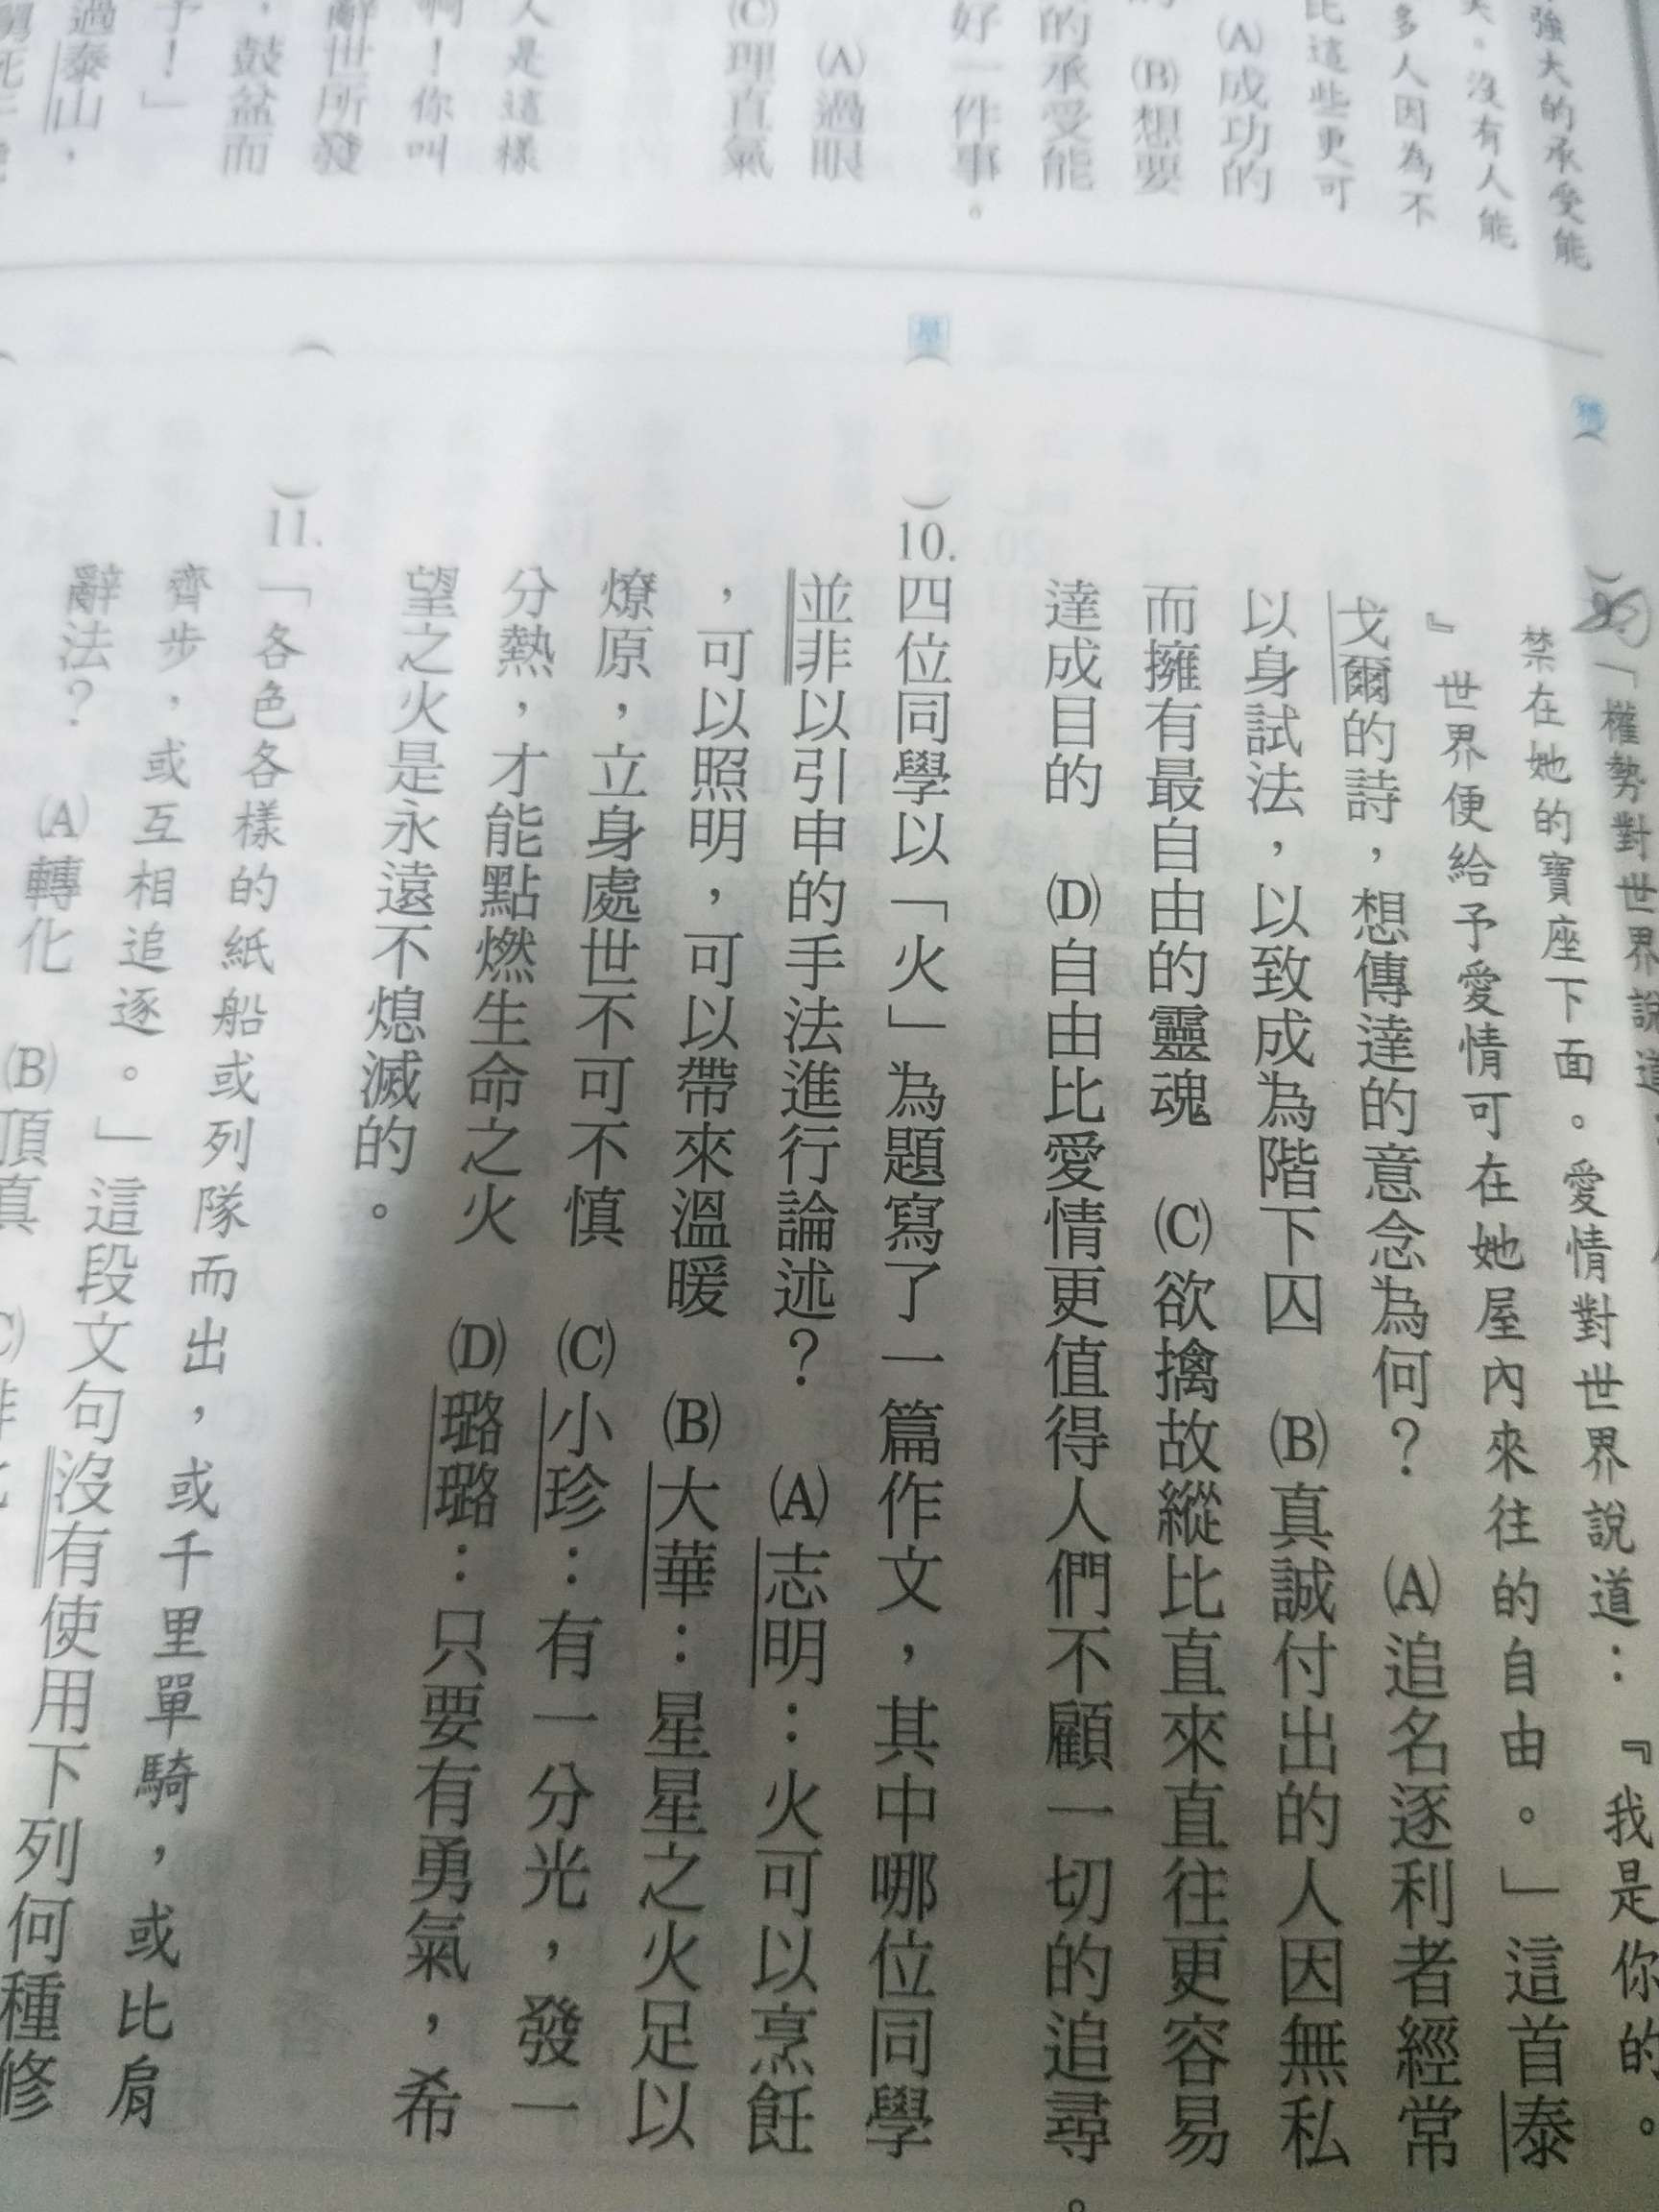 強大的承受能
。沒有人能
多人因為不
比這些更可
(A)成功的
(B)想要
的承受能
好一件事。
(A)過眼
(C)理直氣
人是這樣
啊！你叫
辭世所發
，鼓盆而
子！」
過泰山，
「權勢對世界說道
：『我是你的。
禁在她的寶座下面。愛情對世界說道：
』世界便給予愛情可在她屋內來往的自由。」這首泰
戈爾的詩，想傳達的意念為何？　(A)追名逐利者經常
以身試法，以致成為階下囚　(B)真誠付出的人因無私
而擁有最自由的靈魂　(C)欲擒故縱比直來直往更容易
達成目的　(D)自由比愛情更值得人們不顧一切的追尋。
(　)10.四位同學以「火」為題寫了一篇作文，其中哪位同學
並非以引申的手法進行論述？　(A)志明：火可以烹飪
，可以照明，可以帶來溫暖　(B)大華：星星之火足以
燎原，立身處世不可不慎　(C)小珍：有一分光，發一
分熱，才能點燃生命之火　(D)璐璐：只要有勇氣，希
望之火是永遠不熄滅的。
(　)11.「各色各樣的紙船或列隊而出，或千里單騎，或比肩
齊步，或互相追逐。」這段文句沒有使用下列何種修
辭法？　(A)轉化　(B)頂真